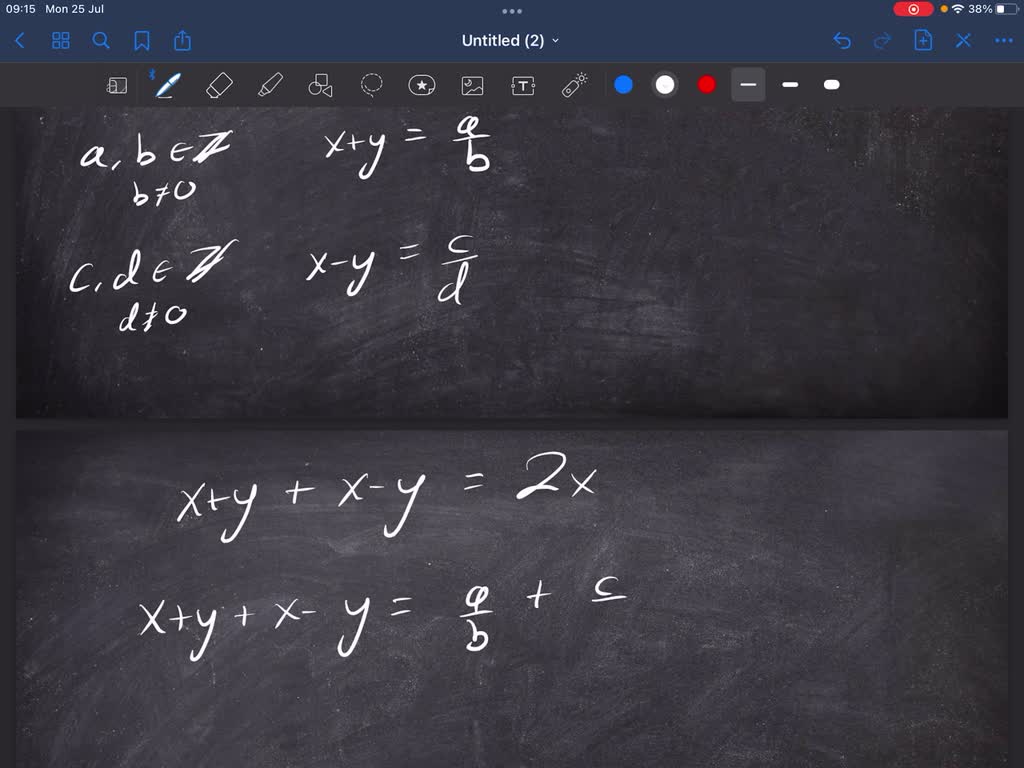 09:15 Mon 25 Jul 38%
Untitled (2)
T
a, b ∈ ℤ x+y = a/b
b ≠ 0
c, d ∈ ℤ x-y = c/d
d ≠ 0
x+y + x-y = 2x
x+y + x-y = a/b + c